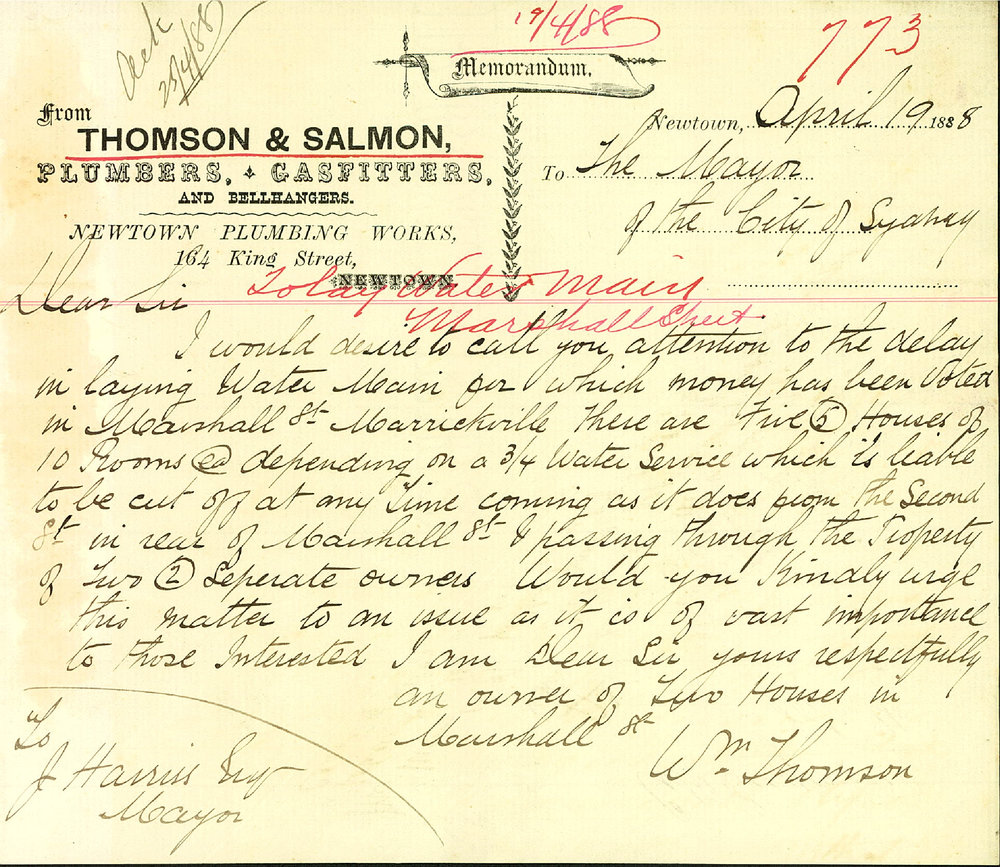 Ack
25/4/88
19/4/88
773
Memorandum.
From
THOMSON & SALMON,
PLUMBERS, GASFITTERS,
AND BELLHANGERS.
NEWTOWN PLUMBING WORKS,
164 King Street,
NEWTOWN
Newtown, April 19 1888
To The Mayor
of the City of Sydney
To lay Water Main
Marshall Street
Dear Sir
I would desire to call you attention to the delay
in laying Water Main for which money has been Voted
in Marshall St Marrickville There are Five (5) Houses of
10 Rooms ea depending on a 3/4 Water Service which is liable
to be cut off at any Time coming as it does from the Second
St in rear of Marshall St & passing through the Property
of Two (2) Seperate owners Would you Kindly urge
this matter to an issue as it is of vast importance
to those Interested I am Dear Sir yours respectfully
an owner of Two Houses in
Marshall St
Wm Thomson
To
J Harris Esq
Mayor